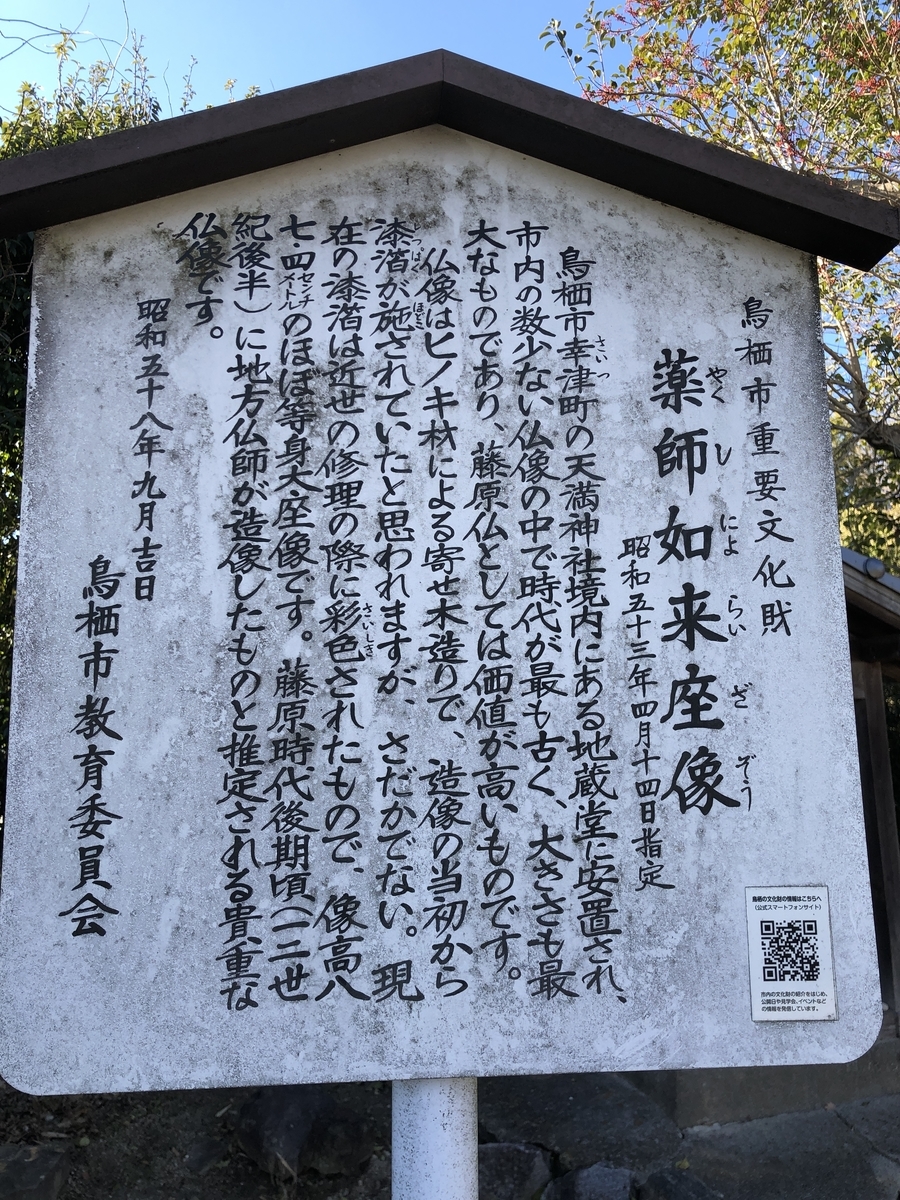 鳥栖市重要文化財
薬師如来座像
やくしによらいざぞう
昭和五十三年四月十四日指定
鳥栖市幸津町の天満神社境内にある地蔵堂に安置され、
さいつ
市内の数少ない仏像の中で時代が最も古く、大きさも最
大なものであり、藤原仏としては価値が高いものです。
仏像はヒノキ材による寄せ木造りで、造像の当初から
漆滔が施されていたと思われますが、さだかでない。現
つぱく ほどこ
在の漆滔は近世の修理の際に彩色されたもので、像高八
さいしき
七・四センチメートルのほぼ等身大座像です。藤原時代後期頃(一二世
紀後半)に地方仏師が造像したものと推定される貴重な
仏像です。
昭和五十八年九月吉日
鳥栖市教育委員会
鳥栖の文化財の情報はこちらへ
(公式スマートフォンサイト)
市内の文化財の紹介をはじめ、
公開日や見学会、イベントなど
の情報を発信しています。